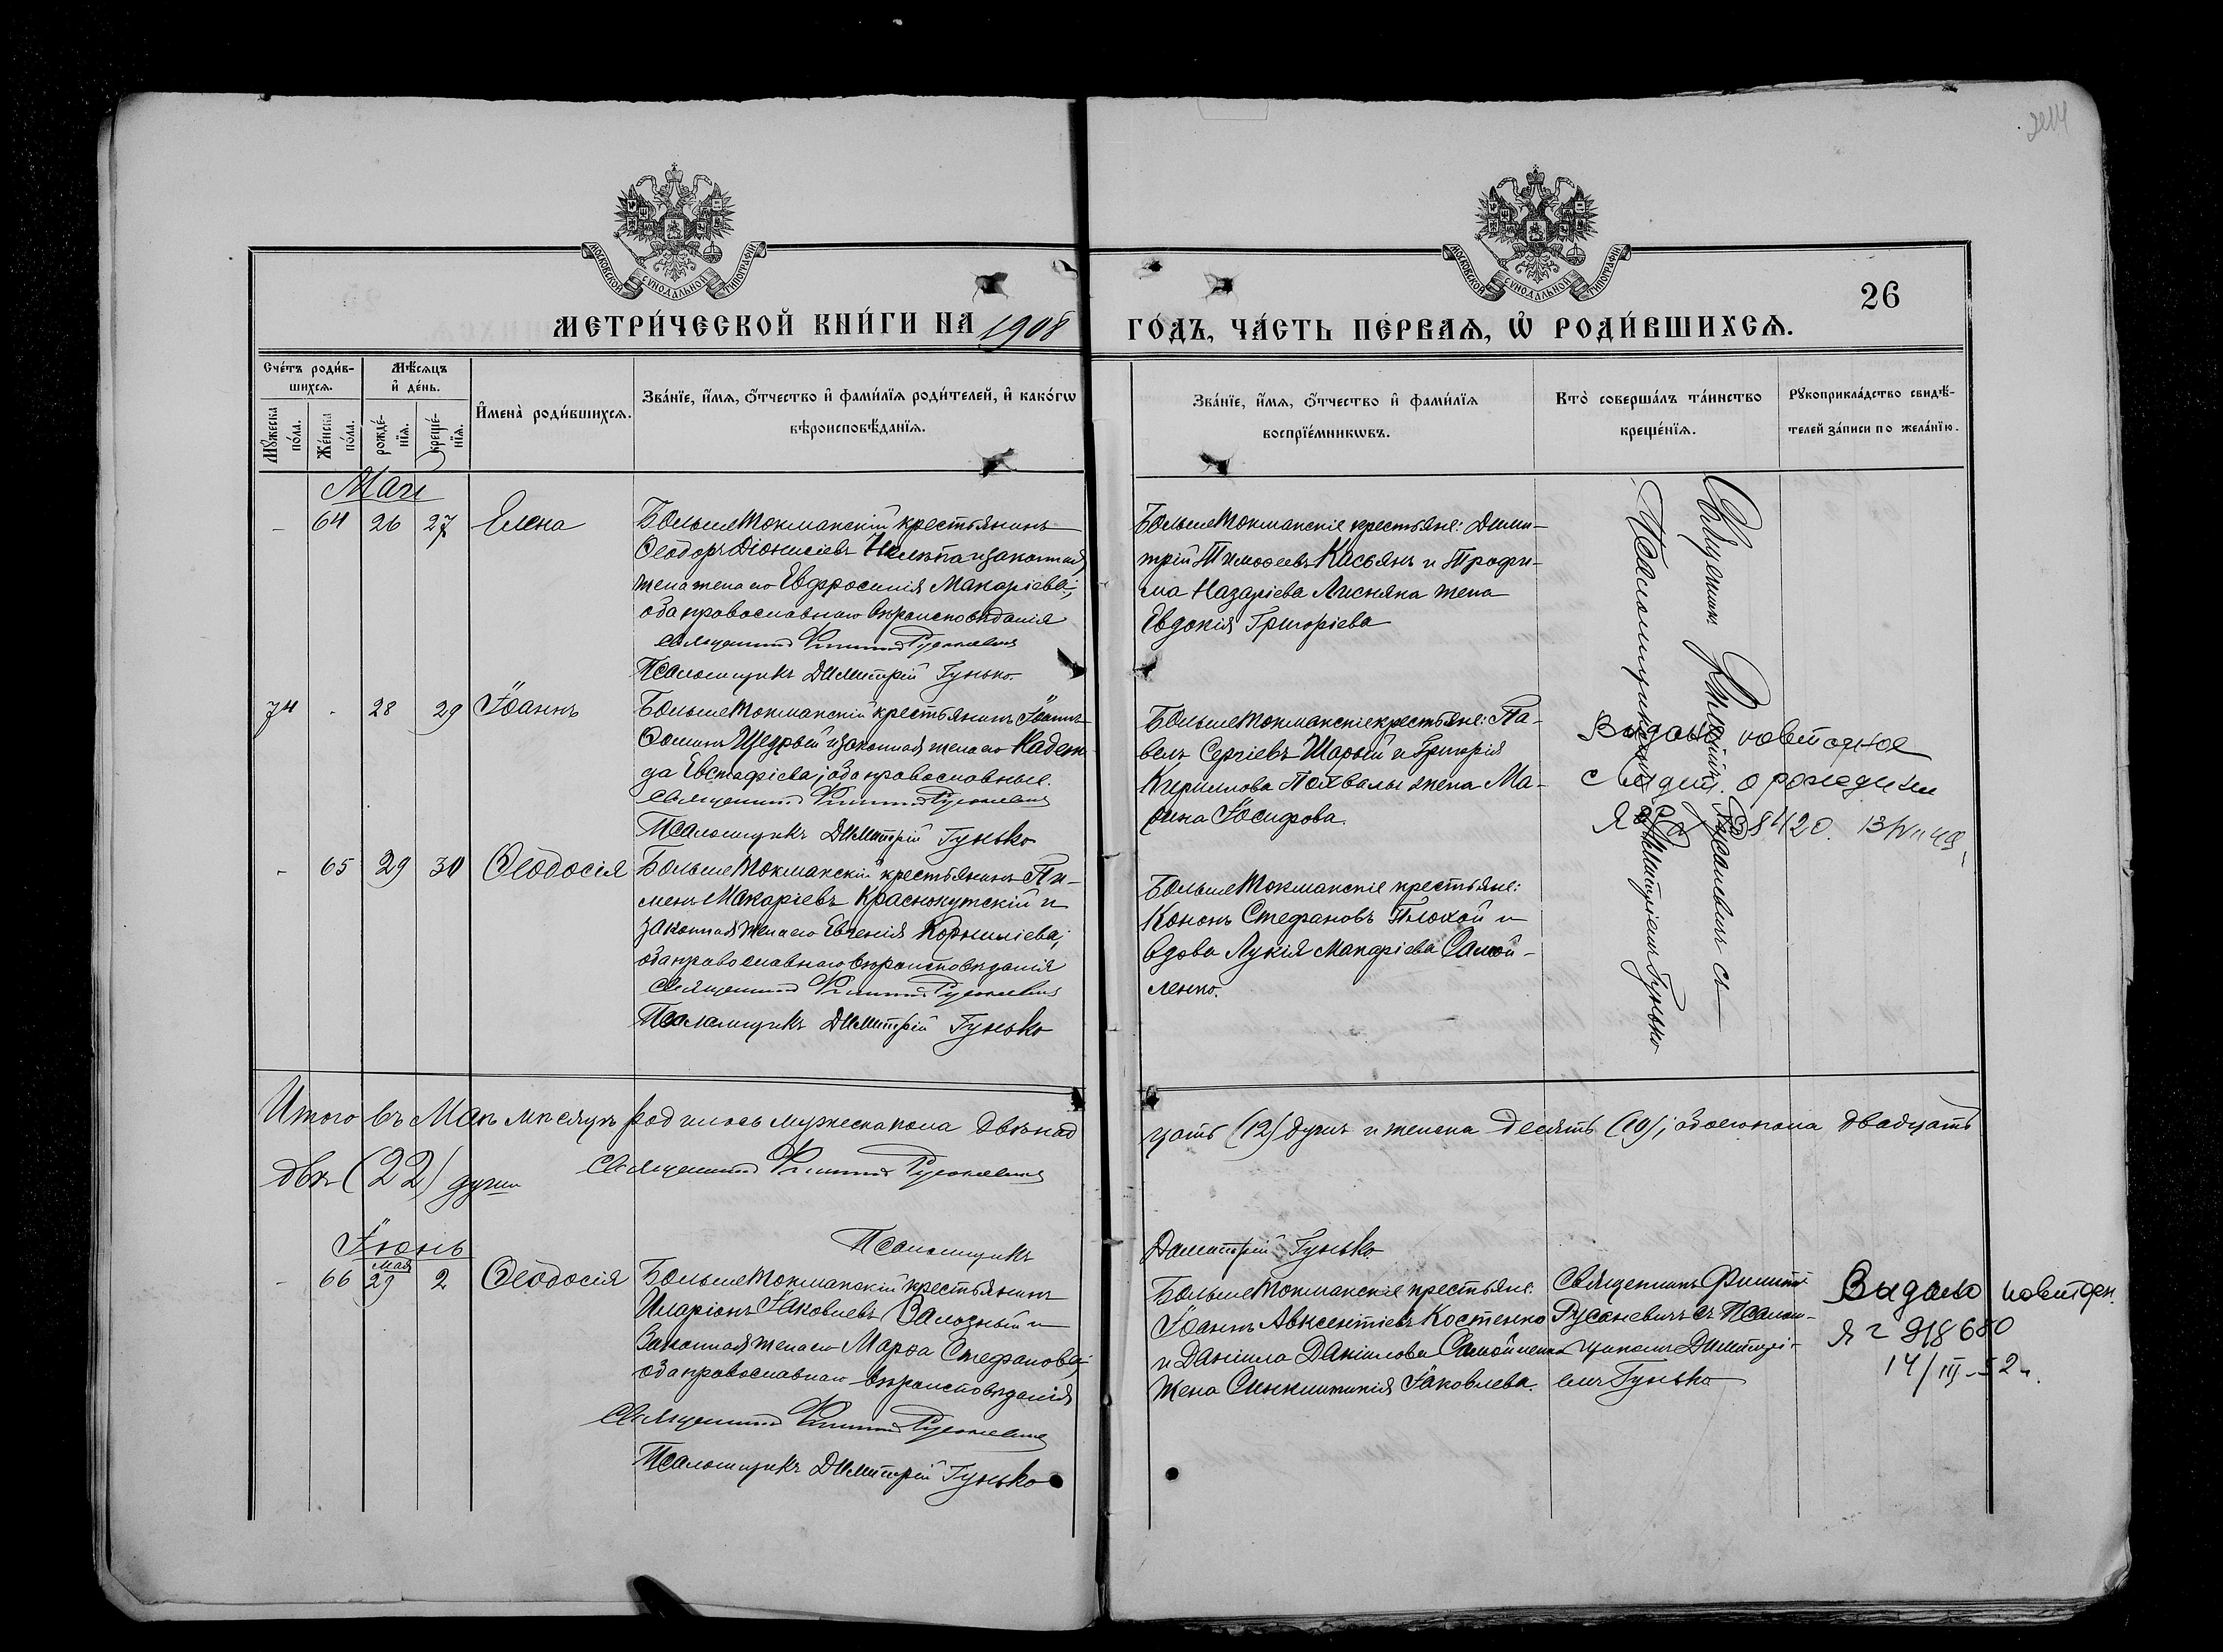 214
МОСКОВСКОЙ СѴНОДАЛЬНОЙ ТИПОГРАФІИ
МОСКОВСКОЙ СѴНОДАЛЬНОЙ ТИПОГРАФІИ
26
МЕТРИ́ЧЕСКОЙ КНИ́ГИ НА 1908
ГО́ДЪ, ЧА́СТЬ ПЕ́РВАѦ, Ѡ҆ РОДИ́ВШИХСѦ.
Сче́тъ роди́в-
шихсѧ.
Мѣ́сѧцъ
и҆ де́нь.
Мꙋ́жеска
по́ла.
Же́нска
по́ла.
рожде́-
нїѧ.
креще́-
нїѧ.
И҆мена̀ роди́вшихсѧ.
Зва́нїе, и҆́мѧ, ѻ҆́тчество и҆ фами́лїѧ роди́телей, и҆ како́гѡ
вѣроисповѣ́данїѧ.
Зва́нїе, и҆́мѧ, ѻ҆́тчество и҆ фами́лїѧ
воспрїе́мникѡвъ.
Кто̀ соверша́лъ та́инство
креще́нїѧ.
Рꙋкоприкла́дство свидѣ́-
телей за́писи по жела́нїю.
Май
- 64 26 27 Елена
БольшеТокмакскій крестьянинъ
Ѳеодоръ Діонисіевъ и законная
жена жена его Евфросинія Макаріева;
оба православнаго вѣроисповѣданія
Священникъ Филиппъ Русаневичъ
Псаломщикъ Димитрій Гунько.
БольшеТокмакскіе крестьяне: Дими-
трій Тимоѳеевъ Касьянъ и Трофи-
ма Назаріева Лисняка жена
Евдокія Григоріева
74 - 28 29 Іоаннъ
БольшеТокмакскій крестьянинъ Іоаннъ
Ѳоминъ Щедрый и законная жена его Надеж-
да Евстафіева; оба православные.
Священникъ Филиппъ Русаневичъ
Псаломщикъ Димитрій Гунько
БольшеТокмакскіе крестьяне: Па-
велъ Сергіевъ Шарый и Григорія
Кириллова Похвалы жена Ма-
рина Іосифова.
Священникъ Филиппъ Русаневичъ съ
Псаломщикомъ Димитріемъ Гунько
Видано повторное
о рождении
8420.
- 65 29 30 Ѳеодосія
БольшеТокмакскій крестьянинъ Пи-
менъ Макаріевъ Краснокутскій и
законная жена его Евгенія Корниліева;
оба православнаго вѣроисповѣданія
Священникъ Филиппъ Русаневичъ
Псаломщикъ Димитрій Гунько
БольшеТокмакскіе крестьяне:
Кононъ Стефановъ Плохой и
вдова Лукія Макаріева Самой-
ленко.
Итого въ Маѣ мѣсяцѣ родилось мужеска пола двѣнад
цать (12) душъ и женска десять (10); обоего пола двадцать
двѣ (22) души
Священникъ Филиппъ Русаневичъ
Псаломщикъ
Димитрій Гунько
Іюнь
- 66 Мая 29 2 Ѳеодосія
БольшеТокмакскій крестьянинъ
Иларіонъ Іаковлевъ Залозный и
законная жена его Марѳа Стефанова;
оба православнаго вѣроисповѣданія
Священникъ Филиппъ Русаневичъ
Псаломщикъ Димитрій Гунько
БольшеТокмакскіе крестьяне:
Іоаннъ Авксентіевъ Костенко
и Даніила Даніилова Самойленка
жена Синклитикія Іаковлева.
Священникъ Филиппъ
Русаневичъ съ Псалом-
щикомъ Димитрі-
емъ Гунько
Видано
918680
14/III-52